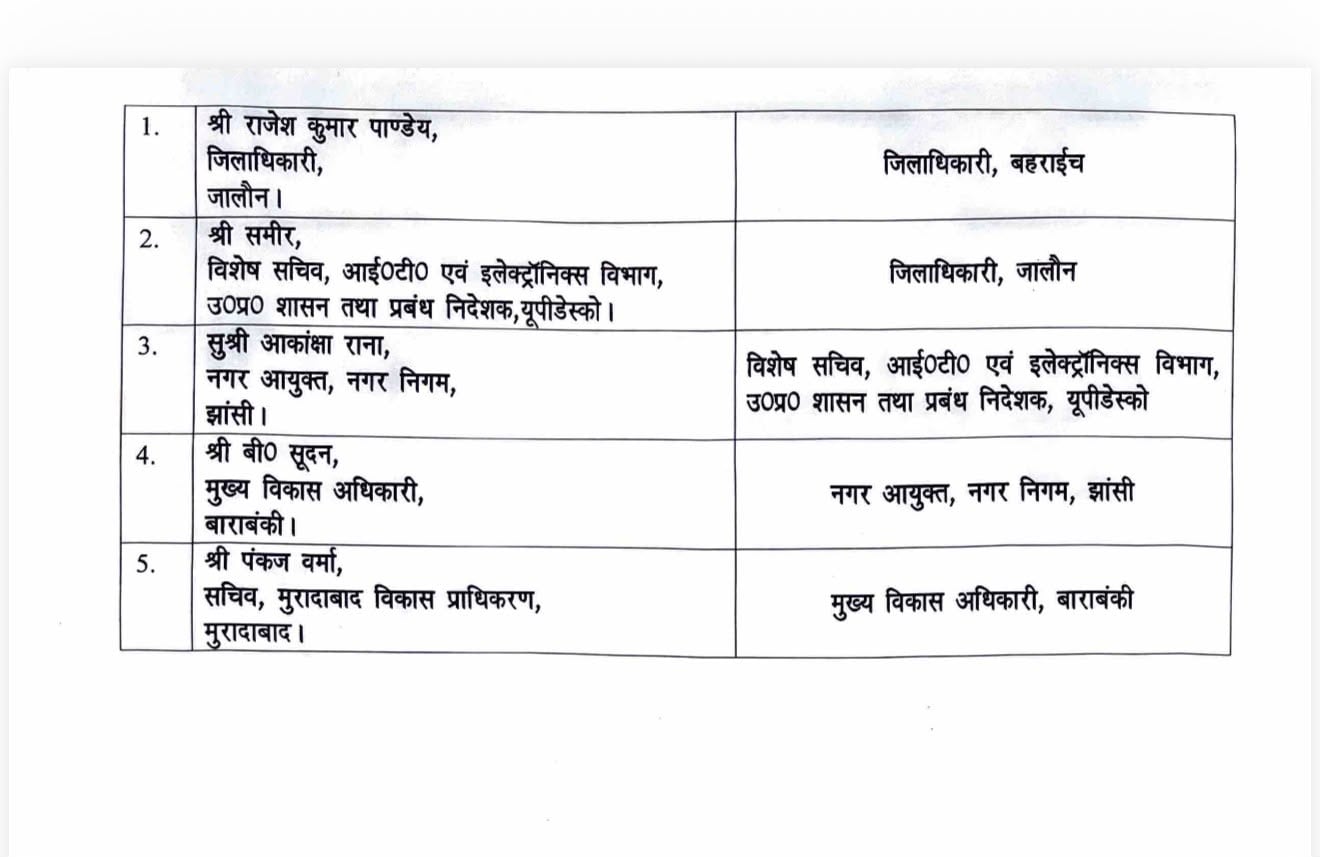 1.
श्री राजेश कुमार पाण्डेय,
जिलाधिकारी,
जालौन।
जिलाधिकारी, बहराईच
2.
श्री समीर,
विशेष सचिव, आई0टी0 एवं इलेक्ट्रॉनिक्स विभाग,
उ0प्र0 शासन तथा प्रबंध निदेशक,यूपीडेस्को।
जिलाधिकारी, जालौन
3.
सुश्री आकांक्षा राना,
नगर आयुक्त, नगर निगम,
झांसी।
विशेष सचिव, आई0टी0 एवं इलेक्ट्रॉनिक्स विभाग,
उ0प्र0 शासन तथा प्रबंध निदेशक, यूपीडेस्को
4.
श्री बी0 सूदन,
मुख्य विकास अधिकारी,
बाराबंकी।
नगर आयुक्त, नगर निगम, झांसी
5.
श्री पंकज वर्मा,
सचिव, मुरादाबाद विकास प्राधिकरण,
मुरादाबाद।
मुख्य विकास अधिकारी, बाराबंकी